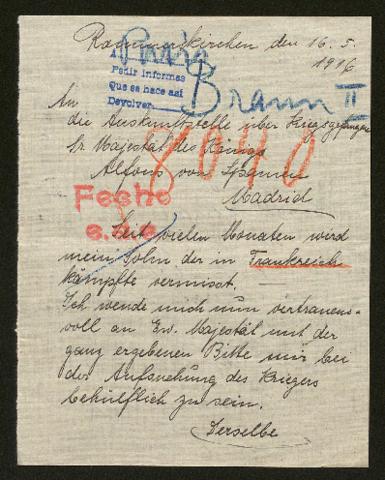 den 16. 5.
1916
Paris
A
Pedir informes
Que se hace asi
Devolver
Braun II
An
die Auskunftstelle über Kriegsgefangene
Sr Majestät des Königs
Alfons von Spanien
Madrid
8090
Fecho
e.s.e.
Seit vielen Monaten wird
mein Sohn der in Frankreich
kämpfte vermisst.
Ich wende mich nun vertrauens-
voll an Ew. Majestät mit der
ganz ergebenen Bitte mir bei
der Aufsuchung des Kriegers
behülflich zu sein.
Derselbe